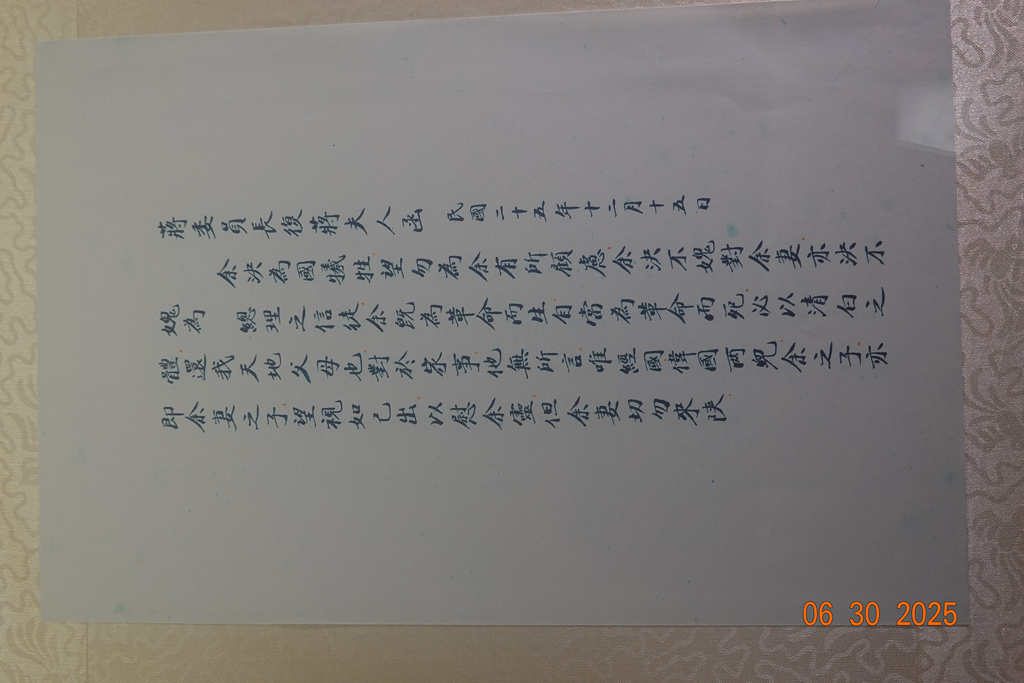 蔣委員長復蔣夫人函 民國二十五年十二月十五日
余決為國犧牲望勿為余有所顧慮余決不愧對余妻亦決不
愧為 總理之信徒余既為革命而生自當為革命而死必以清白之
體還我天地父母也對於家事他無所言唯經國偉國兩兒余之子亦
即余妻之子望視如己出以慰余靈但余妻切勿來陝
06 30 2025